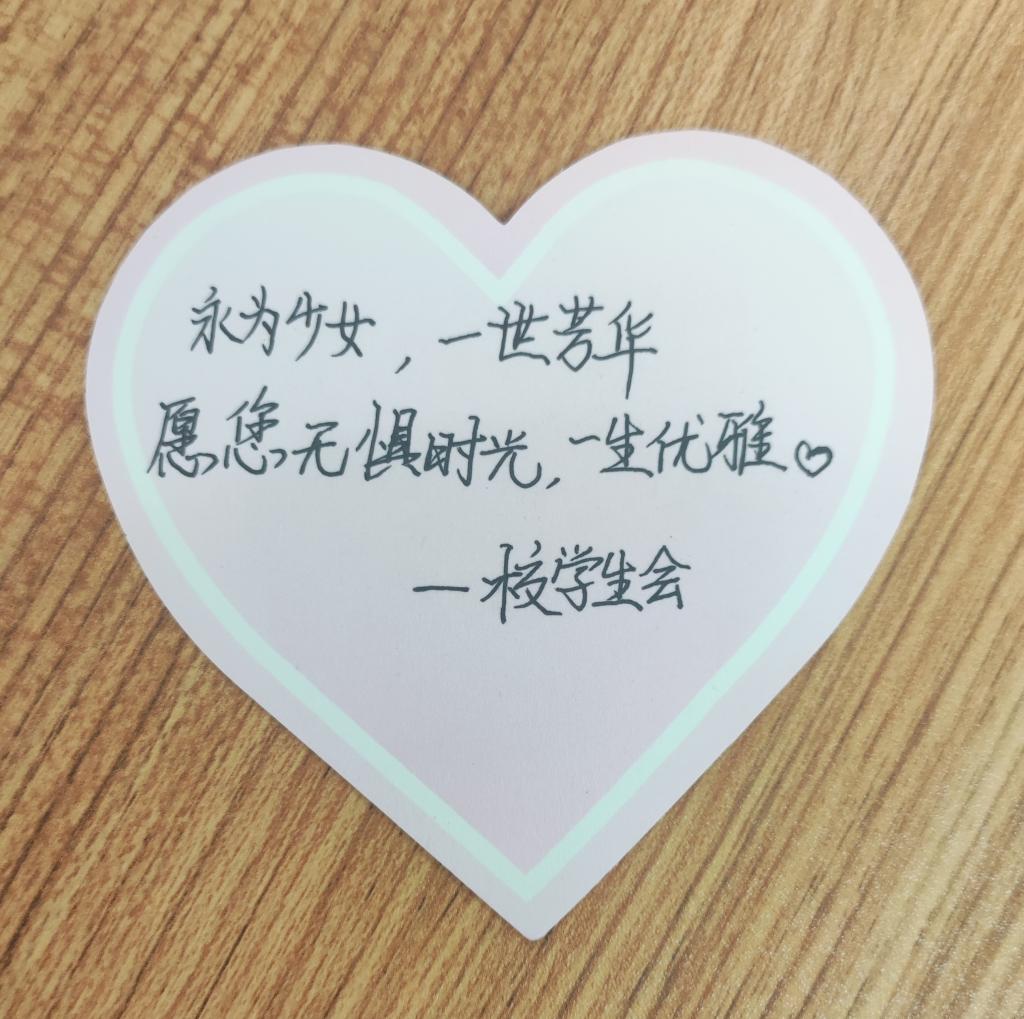 永为少女，一世芳华
愿您无惧时光，一生优雅。♡
—校学生会